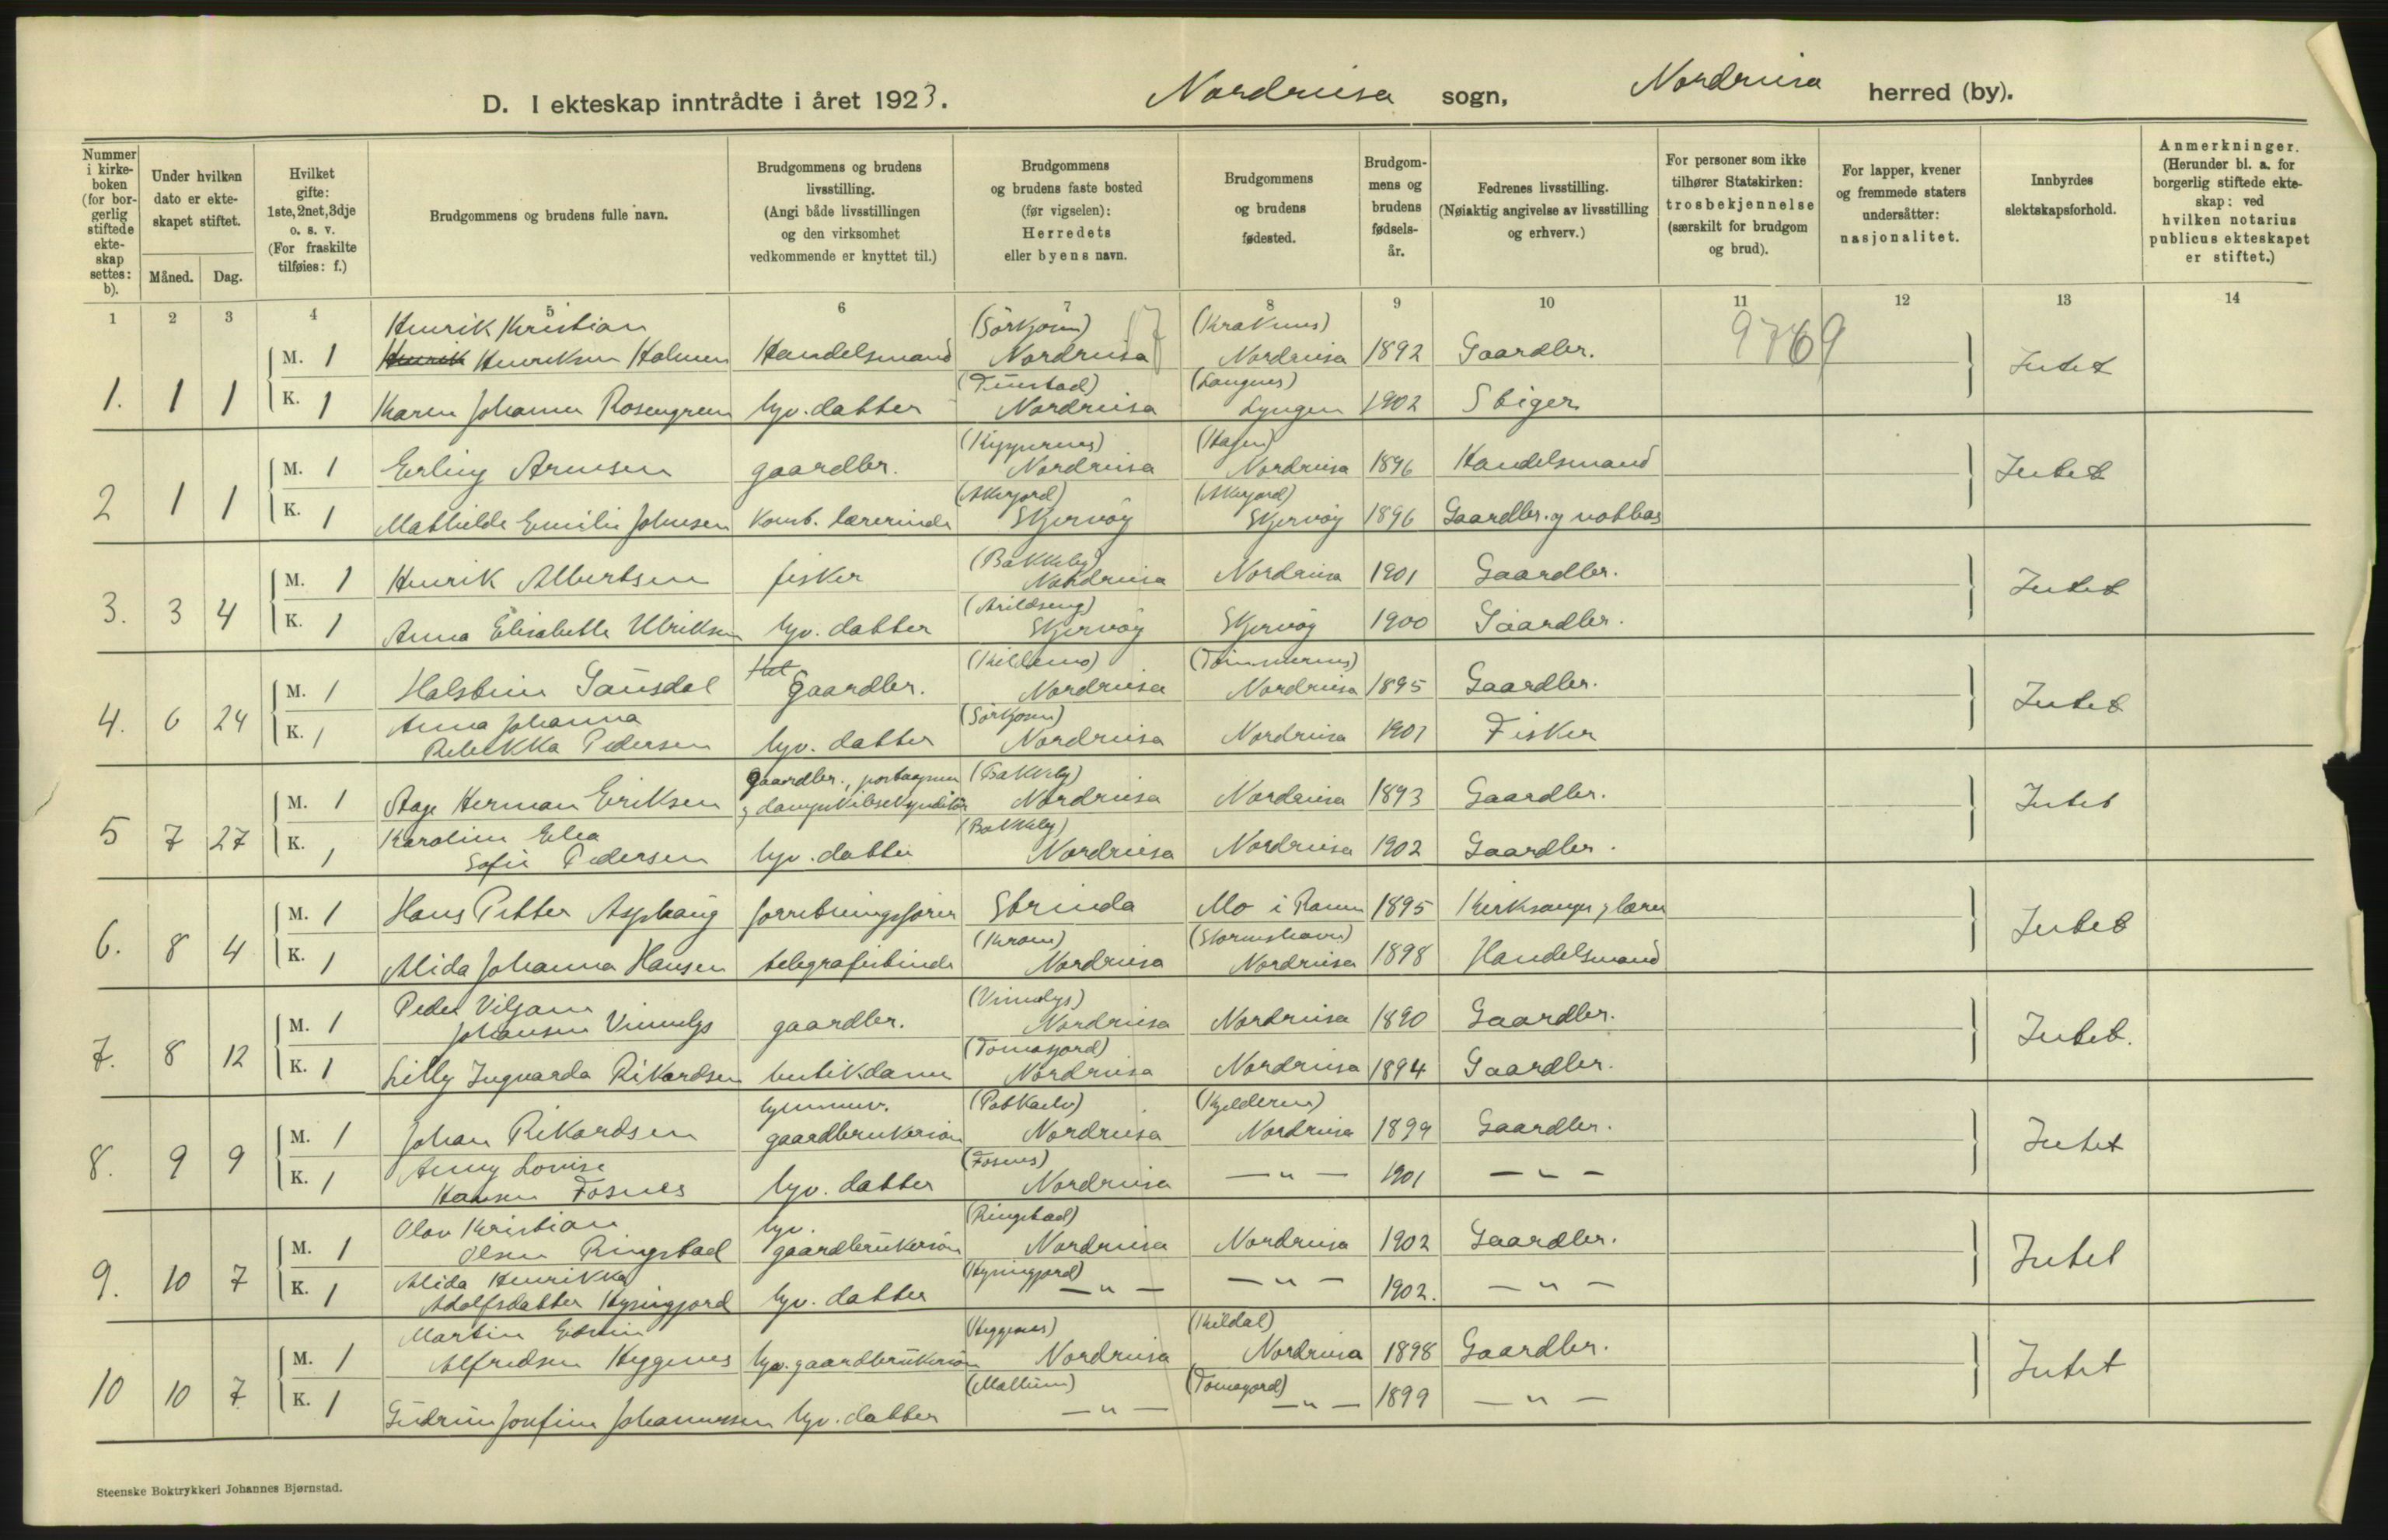 D. I ekteskap inntrådte i året 1923. Nordreisa sogn, Nordreisa herred (by).
Nummer i kirkeboken (for borgerlig stiftede ekteskap settes: b).
Under hvilken dato er ekteskapet stiftet.
Måned. Dag.
Hvilket gifte: 1ste, 2net, 3dje o. s. v. (For fraskilte tilføies: f.)
Brudgommens og brudens fulle navn.
Brudgommens og brudens livsstilling. (Angi både livsstillingen og den virksomhet vedkommende er knyttet til.)
Brudgommens og brudens faste bosted (før vigselen): Herredets eller byens navn.
Brudgommens og brudens fødested.
Brudgommens og brudens fødselsår.
Fedrenes livsstilling. (Nøiaktig angivelse av livsstilling og erhverv.)
For personer som ikke tilhører Statskirken: trosbekjennelse (særskilt for brudgom og brud).
For lapper, kvener og fremmede staters undersåtter: nasjonalitet.
Innbyrdes slektskapsforhold.
Anmerkninger. (Herunder bl. a. for borgerlig stiftede ekteskap: ved hvilken notarius publicus ekteskapet er stiftet.)
1 2 3 4 5 6 7 8 9 10 11 12 13 14
9769
Henrik Kristian (Sörkjosen) (Kraknes)
M. 1 Henrik Henriksen Holmen Handelsmand Nordreisa Nordreisa 1892 Gaardbr. Intet
(Tunstad) (Langnes)
1. 1 1 K. 1 Karen Johanne Rosengren hjv. datter Nordreisa Lyngen 1902 Stiger
(Hagen)
M. 1 Erling Arnesen gaardbr. Nordreisa Nordreisa 1896 Handelsmand Intet
(Akerjord) (Akerjord)
2 1 1 K. 1 Mathilde Emilie Johnsen Komb. lærerinde Skjervöy Skjervöy 1896 Gaardbr. og notbas
(Bakkeby)
M. 1 Henrik Albertsen fisker Nordreisa Nordreisa 1901 Gaardbr. Intet
(Arildseng)
3. 3 4 K. 1 Anna Elisabeth Ulriksen hjv. datter Skjervöy Skjervöy 1900 Gaardbr.
(Kildemo) (Tömmernes)
M. 1 Halstein Gausdal gaardbr. Nordreisa Nordreisa 1895 Gaardbr. Intet
Anna Johanna (Sörkjosen)
4. 6 24 K. 1 Rebekka Pedersen hjv. datter Nordreisa Nordreisa 1901 Fisker
gaardbr., postaapner (Bakkeby)
M. 1 Aage Herman Eriksen og dampskibsekspeditör Nordreisa Nordreisa 1893 Gaardbr. Intet
Karoline Elea (Bakkeby)
5 7 27 K. 1 Sofie Pedersen hjv. datter Nordreisa Nordreisa 1902 Gaardbr.
M. 1 Hans Petter Asphaug forretningsförer Strinda Mo i Ranen 1895 Kirksanger og lærer Intet
(Storneshavn)
6. 8 4 K. 1 Alida Johanna Hansen telegrafistinde Nordreisa Nordreisa 1898 Handelsmand
Peder Viljam (Vinnelys)
M. 1 Johansen Vinnelys gaardbr. Nordreisa Nordreisa 1890 Gaardbr. Intet.
7. 8 12 K. 1 Lilly Ingvarda Rikardsen butikdame Nordreisa Nordreisa 1894 Gaardbr.
hjemmev. (Kjelderen)
M. 1 Johan Rikardsen gaardbrukersön Nordreisa Nordreisa 1899 Gaardbr. Intet
Anny Lovise (Fosnes)
8. 9 9 K. 1 Hansen Fosnes hjv. datter Nordreisa — " — 1901 — " —
Olav Kristian hjv. (Ringstad)
M. 1 Olsen Ringstad gaardbrukersön Nordreisa Nordreisa 1902 Gaardbr. Intet
Alida Henrikka (Hysingjord)
9. 10 7 K. 1 Adolfsdatter Hysingjord hjv. datter — " — — " — 1902. — " —
Martin Edvin (Heggenes) (Kildal)
M. 1 Alfredsen Heggenes hjv. gaardbrukersön Nordreisa Nordreisa 1898 Gaardbr. Intet
10 10 7 K. 1 Gudrun Josefine Johannessen hjv. datter — " — — " — 1899 — " —
Steenske Boktrykkeri Johannes Bjørnstad.